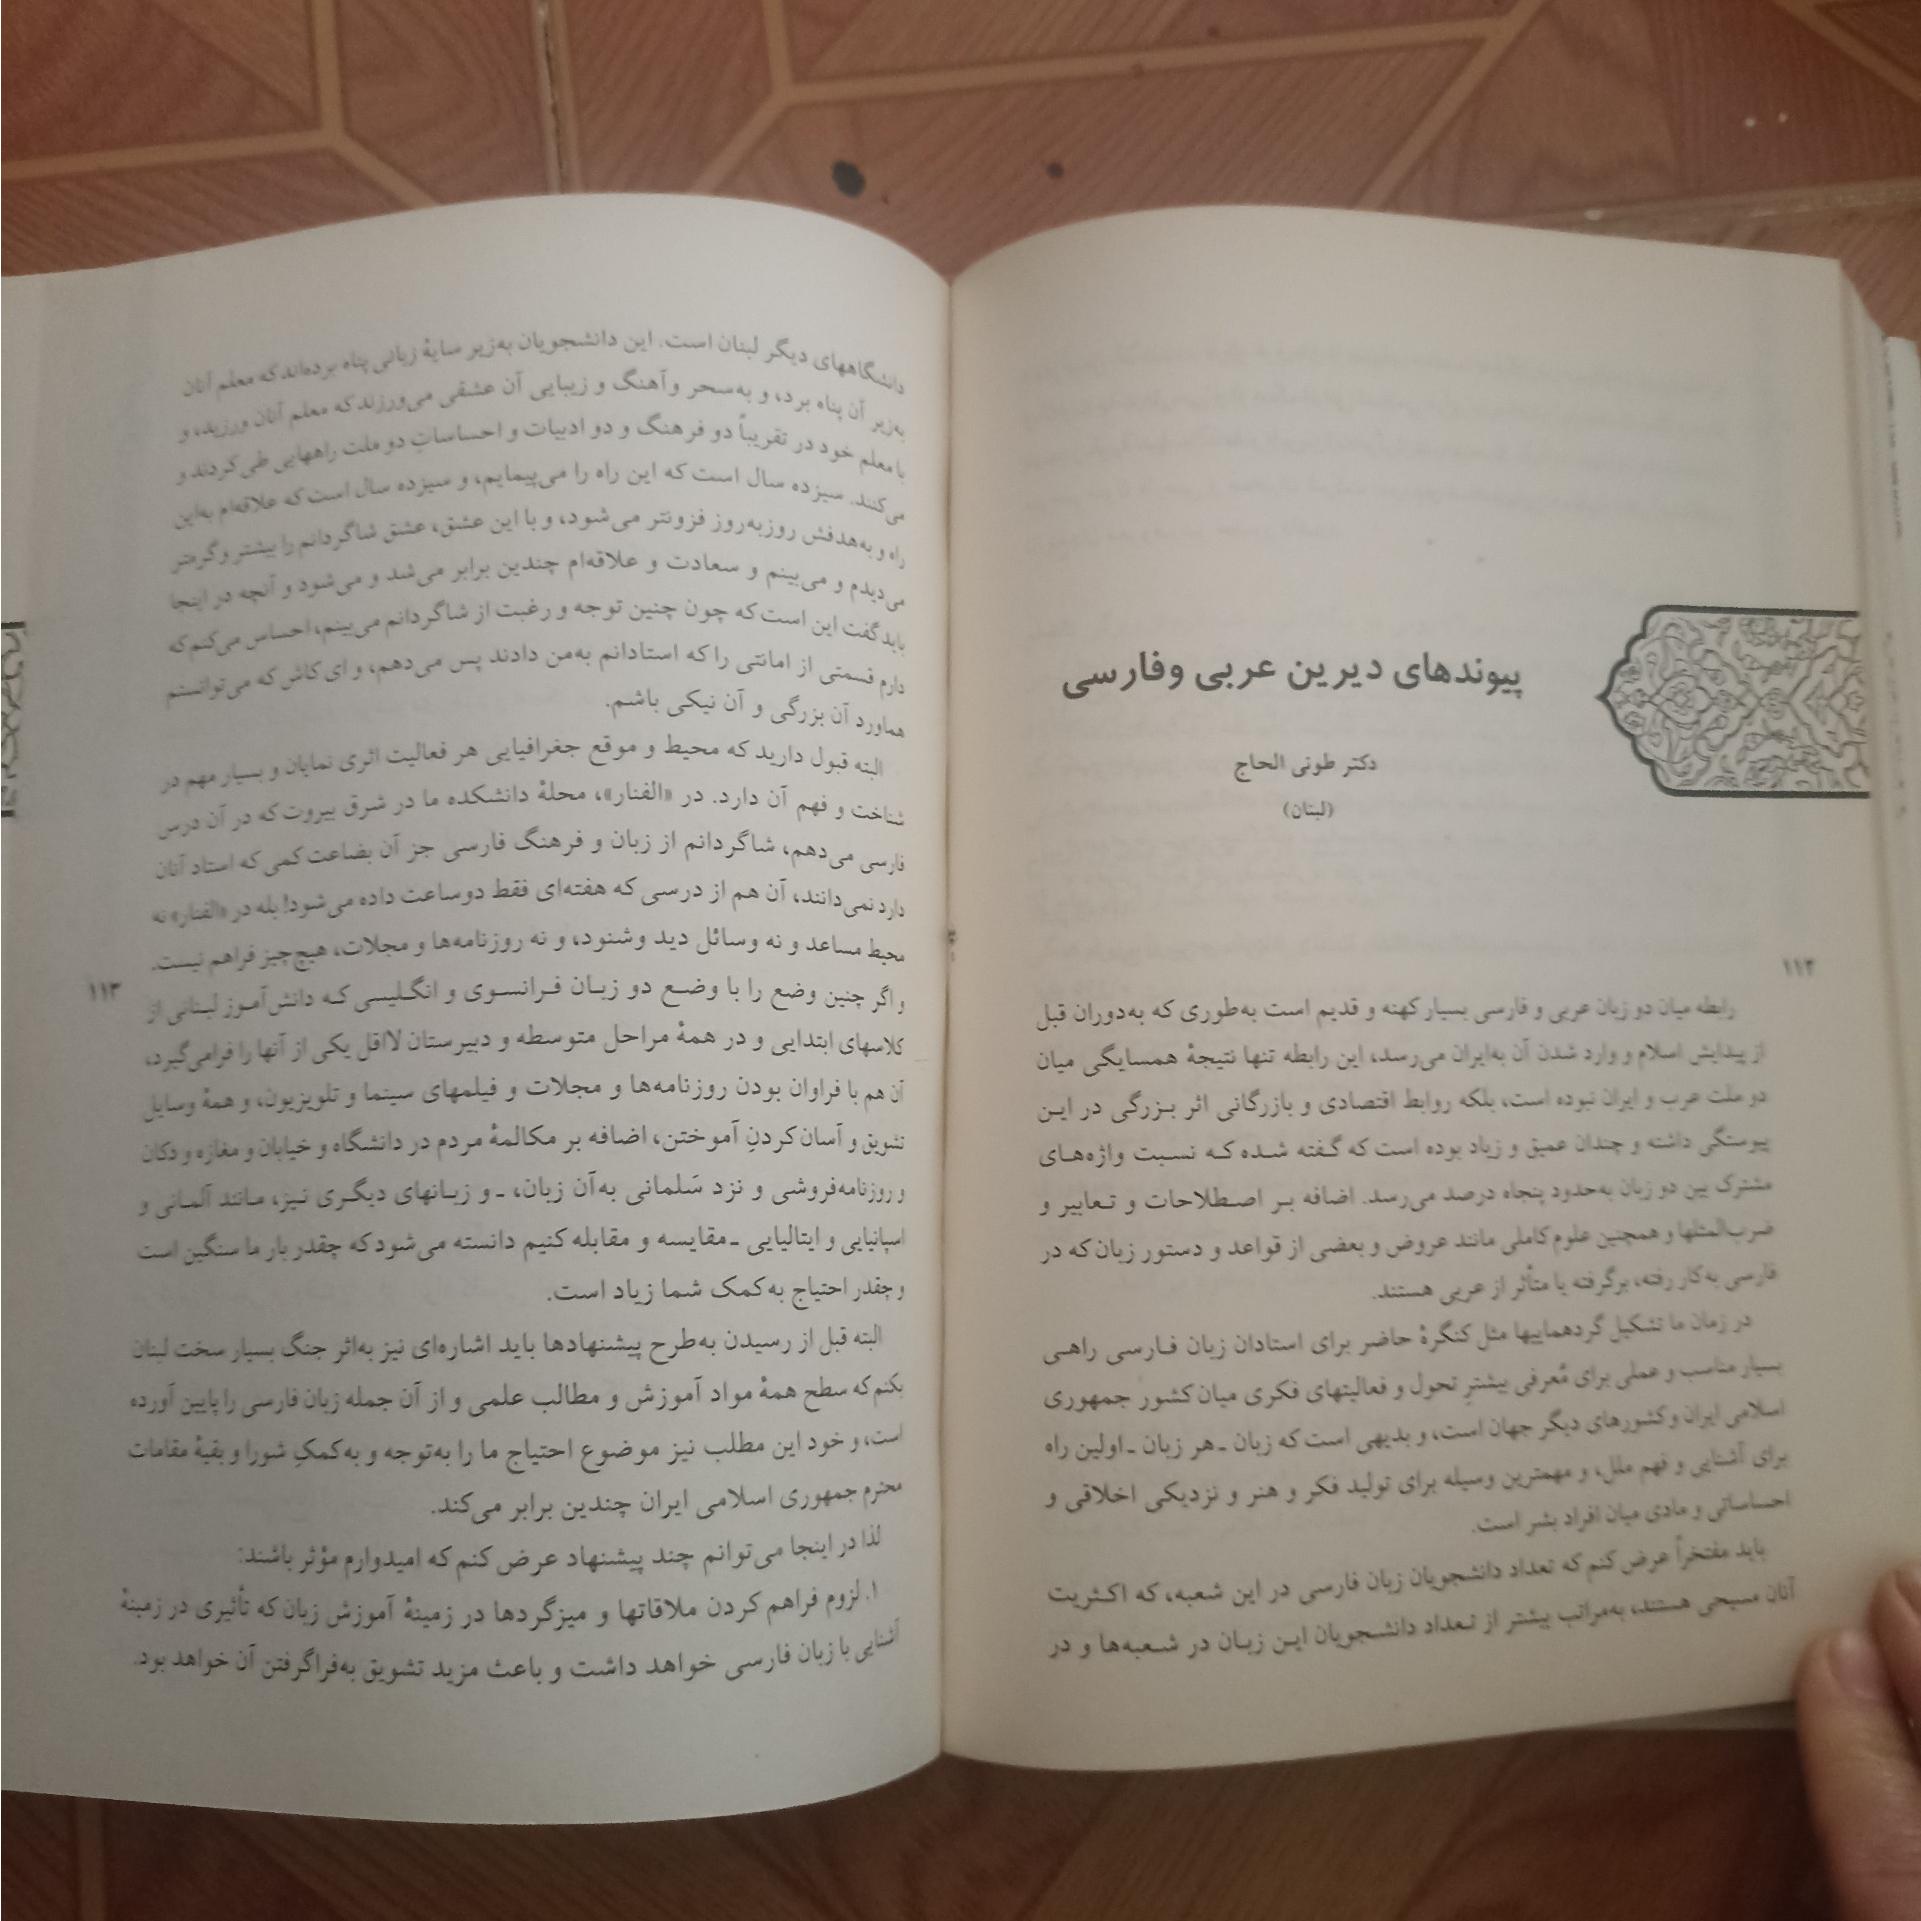 پیوندهای دیرین عربی وفارسی
دکتر طونی الحاج
(لبنان)
۱۱۲
رابطه میان دو زبان عربی و فارسی بسیار کهنه و قدیم است به‌طوری که به‌دوران قبل
از پیدایش اسلام و وارد شدن آن به‌ایران می‌رسد، این رابطه تنها نتیجهٔ همسایگی میان
دو ملت عرب و ایران نبوده است، بلکه روابط اقتصادی و بازرگانی اثر بزرگی در این
پیوستگی داشته و چندان عمیق و زیاد بوده است که گفته شده که نسبت واژه‌های
مشترک بین دو زبان به‌حدود پنجاه درصد می‌رسد. اضافه بر اصطلاحات و تعابیر و
ضرب‌المثلها و همچنین علوم کاملی مانند عروض و بعضی از قواعد و دستور زبان که در
فارسی به‌کار رفته، برگرفته یا متأثر از عربی هستند.
در زمان ما تشکیل گردهماییها مثل کنگرهٔ حاضر برای استادان زبان فارسی راهی
بسیار مناسب و عملی برای مُعرفی بیشترِ تحول و فعالیتهای فکری میان کشور جمهوری
اسلامی ایران و کشورهای دیگر جهان است، و بدیهی است که زبان ـ هر زبان ـ اولین راه
برای آشنایی و فهم ملل، و مهمترین وسیله برای تولید فکر و هنر و نزدیکی اخلاقی و
احساساتی و مادی میان افراد بشر است.
باید مفتخراً عرض کنم که تعداد دانشجویان زبان فارسی در این شعبه، که اکثریت
آنان مسیحی هستند، به‌مراتب بیشتر از تعداد دانشجویان این زبان در شعبه‌ها و در
دانشگاههای دیگر لبنان است. این دانشجویان به‌زیر سایهٔ زبانی پناه برده‌اند که معلم آنان
به‌زیر آن پناه برد، و به‌سحر وآهنگ و زیبایی آن عشقی می‌ورزند که معلم آنان ورزید، و
با معلم خود در تقریباً دو فرهنگ و دو ادبیات و احساساتِ دو ملت راههایی طی کردند و
می‌کنند. سیزده سال است که این راه را می‌پیمایم، و سیزده سال است که علاقه‌ام به‌این
راه و به‌هدفش روزبه‌روز فزونتر می‌شود، و با این عشق، عشق شاگردانم را بیشتر و گرمتر
می‌دیدم و می‌بینم و سعادت و علاقه‌ام چندین برابر می‌شد و می‌شود و آنچه در اینجا
باید گفت این است که چون چنین توجه و رغبت از شاگردانم می‌بینم، احساس می‌کنم که
دارم قسمتی از امانتی را که استادانم به‌من دادند پس می‌دهم، و ای کاش که می‌توانستم
هماورد آن بزرگی و آن نیکی باشم.
البته قبول دارید که محیط و موقع جغرافیایی هر فعالیت اثری نمایان و بسیار مهم در
شناخت و فهم آن دارد. در «الفنار»، محلهٔ دانشکده ما در شرق بیروت که در آن درس
فارسی می‌دهم، شاگردانم از زبان و فرهنگ فارسی جز آن بضاعت کمی که استاد آنان
دارد نمی‌دانند، آن هم از درسی که هفته‌ای فقط دوساعت داده می‌شود! بله در «الفنار» نه
محیط مساعد و نه وسائل دید وشنود، و نه روزنامه‌ها و مجلات، هیچ‌چیز فراهم نیست.
۱۱۳
و اگر چنین وضع را با وضع دو زبان فرانسوی و انگلیسی که دانش‌آموز لبنانی از
کلاسهای ابتدایی و در همهٔ مراحل متوسطه و دبیرستان لااقل یکی از آنها را فرامی‌گیرد،
آن هم با فراوان بودن روزنامه‌ها و مجلات و فیلمهای سینما و تلویزیون، و همهٔ وسایل
تشویق و آسان کردنِ آموختن، اضافه بر مکالمهٔ مردم در دانشگاه و خیابان و مغازه و دکان
و روزنامه‌فروشی و نزد سَلمانی به‌آن زبان، ـ و زبانهای دیگری نیز، مانند آلمانی و
اسپانیایی و ایتالیایی ـ مقایسه و مقابله کنیم دانسته می‌شود که چقدر بار ما سنگین است
و چقدر احتیاج به‌کمک شما زیاد است.
البته قبل از رسیدن به‌طرح پیشنهادها باید اشاره‌ای نیز به‌اثر جنگ بسیار سخت لبنان
بکنم که سطح همهٔ مواد آموزش و مطالب علمی و از آن جمله زبان فارسی را پایین آورده
است، و خود این مطلب نیز موضوع احتیاج ما را به‌توجه و به‌کمکِ شورا و بقیهٔ مقامات
محترم جمهوری اسلامی ایران چندین برابر می‌کند.
لذا در اینجا می‌توانم چند پیشنهاد عرض کنم که امیدوارم مؤثر باشند:
۱. لزوم فراهم کردن ملاقاتها و میزگردها در زمینهٔ آموزش زبان که تأثیری در زمینهٔ
آشنایی با زبان فارسی خواهد داشت و باعث مزید تشویق به‌فراگرفتن آن خواهد بود.